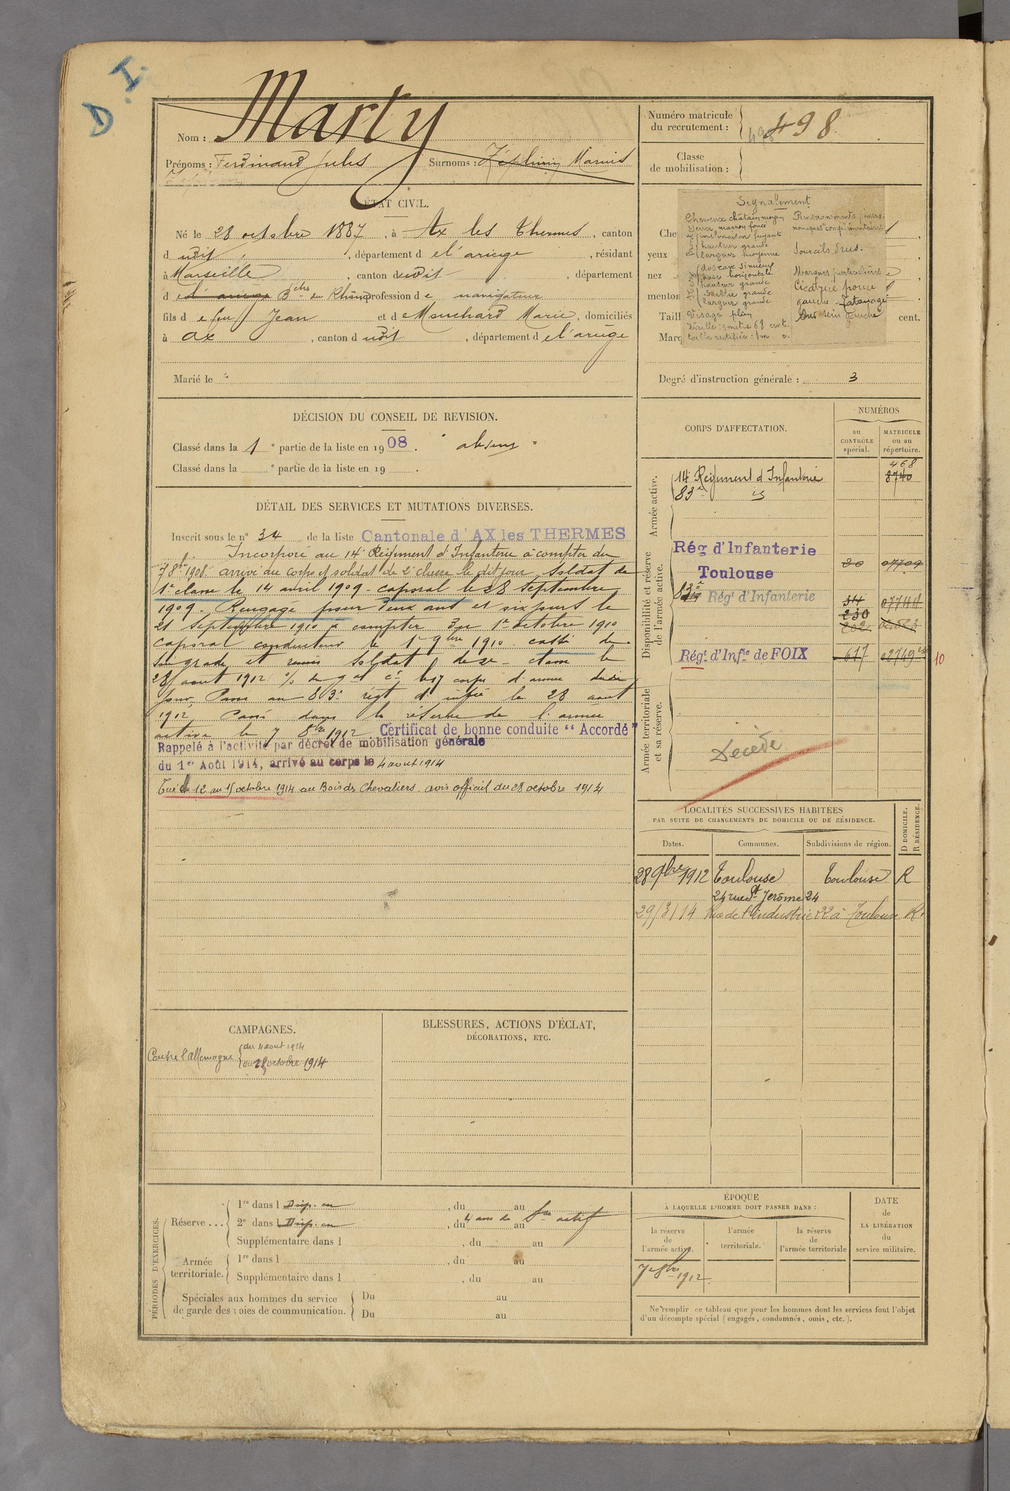 D. I.
Nom : Marty
Prénoms : Ferdinand Jules Surnoms : Zéphirin Marius
ÉTAT CIVIL.
Né le 28 octobre 1887, à Ax les Thermes, canton
d udit, département d e l'ariège, résidant
à Marseille, canton dudit, département
d e l'ariège Bches du Rhône profession de navigateur
fils d e feu Jean et d e Mouchard Marie, domiciliés
à Ax, canton d udit, département d e l'ariège
Marié le
DÉCISION DU CONSEIL DE REVISION.
Classé dans la 1e partie de la liste en 1908. "absent"
Classé dans la e partie de la liste en 19 .
DÉTAIL DES SERVICES ET MUTATIONS DIVERSES.
Inscrit sous le n° 34 de la liste Cantonale d'AX les THERMES
Incorporé au 14e Régiment d'Infanterie à compter du
7 8bre 1908. arrivé au corps et soldat de 2e classe le dit jour. Soldat de
1e classe le 14 avril 1909. caporal le 28 septembre
1909. Rengagé pour deux ans et six jours le
21 septembre 1910 à compter du 1er octobre 1910
caporal conducteur le 1er 9bre 1910. cassé de
son grade et remis soldat de 2e classe le
28 aout 1912 corps d'armée dudit
jour. Passé au 83e regt d'infrie le 28 aout
1912. Passé dans la réserve de l'armée
active le 7 8bre 1912. Certificat de bonne conduite "Accordé"
Rappelé à l'activité par décret de mobilisation générale
du 1er Août 1914, arrivé au corps le 4 aout 1914
Tué du 12 au 15 octobre 1914 au Bois des Chevaliers. avis officiel du 28 octobre 1914
CAMPAGNES.
Contre l'Allemagne du 4 aout 1914
au octobre 1914
BLESSURES, ACTIONS D'ÉCLAT,
DÉCORATIONS, ETC.
PÉRIODES D'EXERCICES.
Réserve ...
1re dans l Disp. en, du au
2e dans l Disp. en, du au
4 ans de Sce actif
Supplémentaire dans l, du au
Armée territoriale.
1re dans l, du au
Supplémentaire dans l, du au
Spéciales aux hommes du service
de garde des voies de communication.
Du au
Du au
Numéro matricule
du recrutement : 498
Classe
de mobilisation :
Signalement
Cheveux châtain moyen
Yeux marron foncé
hauteur grande
largeur moyenne
Dos
hauteur grande
Saillie grande
largeur grande
Visage plein
Taille : 1 metre 68 cent.
taille rectifiée : 1m c.
Renseignements physio-
nomiques complémentaires
Sourcils drus.
Marques particulières
Cicatrice pouce
gauche. Tatouage
sein gauche
Che
yeux
nez
menton
Taill
Marq
cent.
Degré d'instruction générale : 3
CORPS D'AFFECTATION.
NUMÉROS
au
CONTRÔLE
spécial.
MATRICULE
ou au
répertoire.
Armée active.
14e Régiment d'Infanterie 468 8740
83e
Disponibilité et réserve
de l'armée active.
Rég d'Infanterie
Toulouse
83e Régt d'Infanterie
34
230
Régt d'Infie de FOIX 617
10
Armée territoriale
et sa réserve.
Décédé
LOCALITÉS SUCCESSIVES HABITÉES
PAR SUITE DE CHANGEMENTS DE DOMICILE OU DE RÉSIDENCE.
Dates. Communes. Subdivisions de région. D DOMICILE. R RÉSIDENCE.
28 9bre 1912 Toulouse Toulouse R
24 rue St Jérôme 24
29/3/14 Rue de l'Industrie 22 à Toulouse R.
ÉPOQUE
À LAQUELLE L'HOMME DOIT PASSER DANS :
la réserve
de
l'armée active.
l'armée
territoriale.
la réserve
de
l'armée territoriale
DATE
de
LA LIBÉRATION
du
service militaire.
7 8bre 1912.
Ne remplir ce tableau que pour les hommes dont les services font l'objet
d'un décompte spécial (engagés, condamnés, omis, etc.).